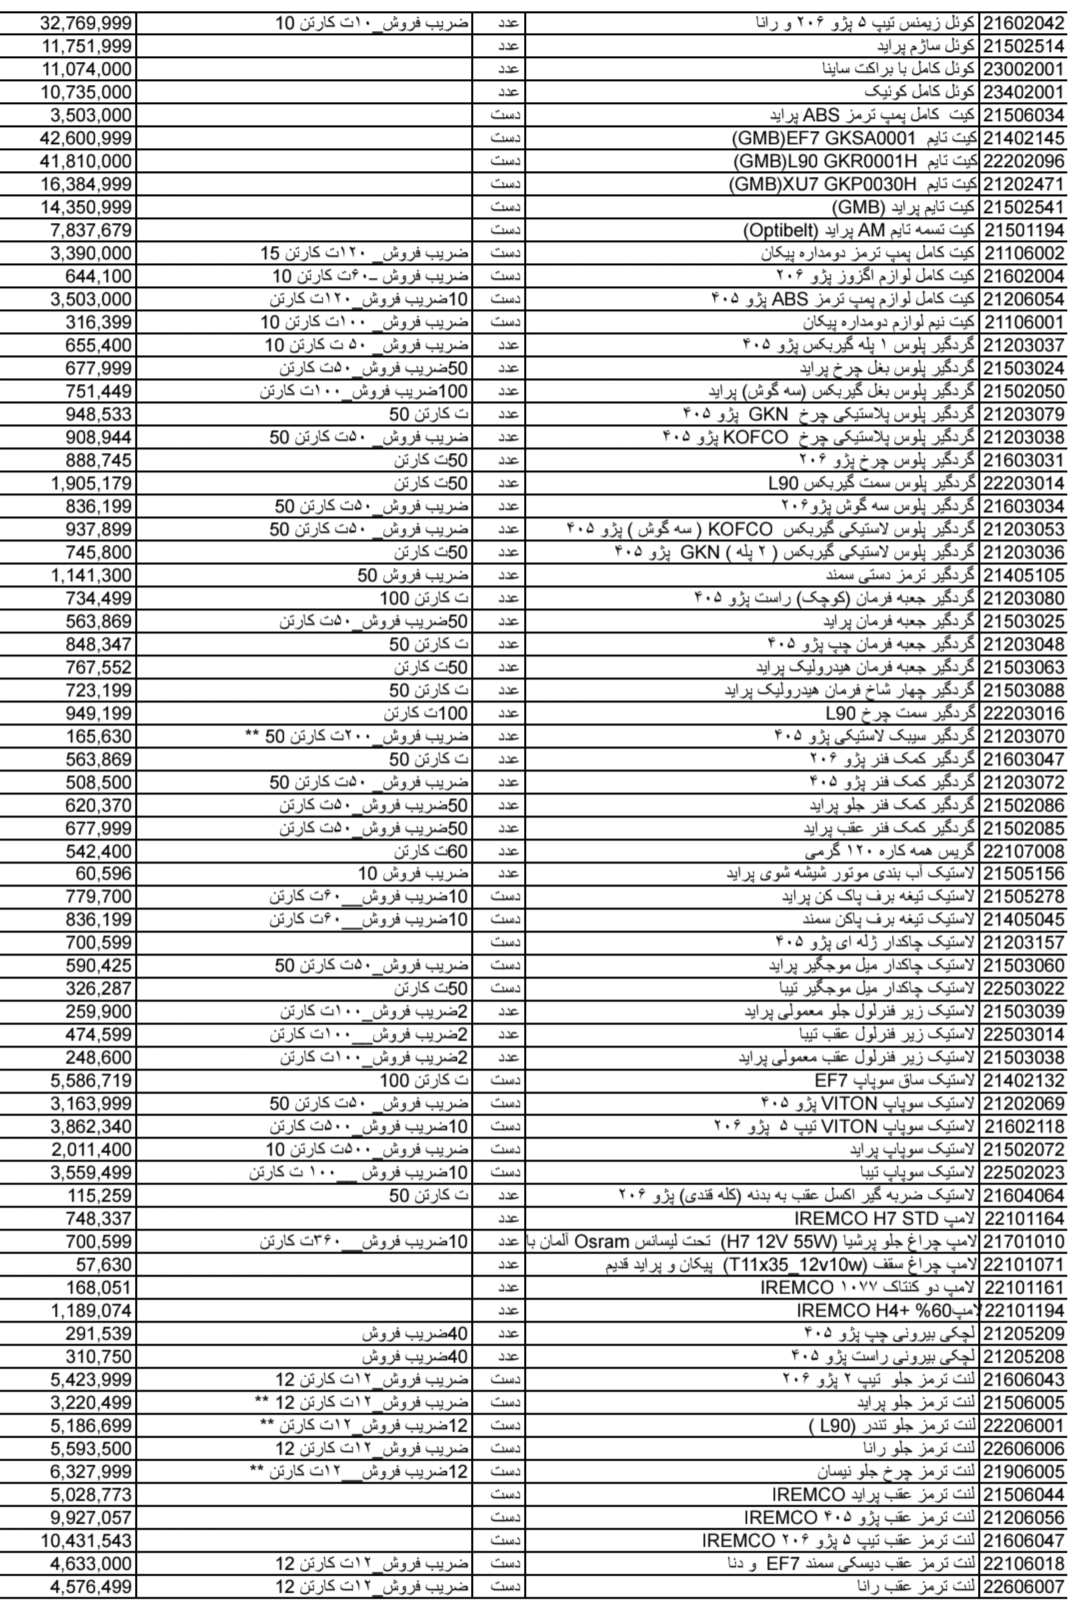 21602042 کوئل زیمنس تیپ ۵ پژو ۲۰۶ و رانا عدد ضریب فروش_۱۰ت کارتن 10 32,769,999
21502514 کوئل ساژم پراید عدد 11,751,999
23002001 کوئل کامل با براکت ساینا عدد 11,074,000
23402001 کوئل کامل کوئیک عدد 10,735,000
21506034 کیت کامل پمپ ترمز ABS پراید دست 3,503,000
21402145 کیت تایم EF7 GKSA0001(GMB) دست 42,600,999
22202096 کیت تایم L90 GKR0001H(GMB) دست 41,810,000
21202471 کیت تایم XU7 GKP0030H(GMB) دست 16,384,999
21502541 کیت تایم پراید (GMB) دست 14,350,999
21501194 کیت تسمه تایم AM پراید (Optibelt) دست 7,837,679
21106002 کیت کامل پمپ ترمز دومداره پیکان دست ضریب فروش_ ۱۲۰ت کارتن 15 3,390,000
21602004 کیت کامل لوازم اگزوز پژو ۲۰۶ دست ضریب فروش _۶۰ت کارتن 10 644,100
21206054 کیت کامل لوازم پمپ ترمز ABS پژو ۴۰۵ دست 10ضریب فروش_۱۲۰ت کارتن 3,503,000
21106001 کیت نیم لوازم دومداره پیکان دست ضریب فروش_ ۱۰۰ت کارتن 10 316,399
21203037 گردگیر پلوس ۱ پله گیربکس پژو ۴۰۵ عدد ضریب فروش_ ۵۰ ت کارتن 10 655,400
21503024 گردگیر پلوس بغل چرخ پراید عدد 50ضریب فروش_۵۰ت کارتن 677,999
21502050 گردگیر پلوس بغل گیربکس (سه گوش) پراید عدد 100ضریب فروش_۱۰۰ت کارتن 751,449
21203079 گردگیر پلوس پلاستیکی چرخ GKN پژو ۴۰۵ عدد ت کارتن 50 948,533
21203038 گردگیر پلوس پلاستیکی چرخ KOFCO پژو ۴۰۵ عدد ضریب فروش_ ۵۰ت کارتن 50 908,944
21603031 گردگیر پلوس چرخ پژو ۲۰۶ عدد 50ت کارتن 888,745
22203014 گردگیر پلوس سمت گیربکس L90 عدد 50ت کارتن 1,905,179
21603034 گردگیر پلوس سه گوش پژو۲۰۶ عدد ضریب فروش_۵۰ت کارتن 50 836,199
21203053 گردگیر پلوس لاستیکی گیربکس KOFCO ( سه گوش ) پژو ۴۰۵ عدد ضریب فروش_ ۵۰ت کارتن 50 937,899
21203036 گردگیر پلوس لاستیکی گیربکس ( ۲ پله ) GKN پژو ۴۰۵ عدد 50ت کارتن 745,800
21405105 گردگیر ترمز دستی سمند عدد ضریب فروش 50 1,141,300
21203080 گردگیر جعبه فرمان (کوچک) راست پژو ۴۰۵ عدد ت کارتن 100 734,499
21503025 گردگیر جعبه فرمان پراید عدد 50ضریب فروش_۵۰ت کارتن 563,869
21203048 گردگیر جعبه فرمان چپ پژو ۴۰۵ عدد ت کارتن 50 848,347
21503063 گردگیر جعبه فرمان هیدرولیک پراید عدد 50ت کارتن 767,552
21503088 گردگیر چهار شاخ فرمان هیدرولیک پراید عدد ت کارتن 50 723,199
22203016 گردگیر سمت چرخ L90 عدد 100ت کارتن 949,199
21203070 گردگیر سیبک لاستیکی پژو ۴۰۵ عدد ضریب فروش_۲۰۰ت کارتن 50 ** 165,630
21603047 گردگیر کمک فنر پژو ۲۰۶ عدد ت کارتن 50 563,869
21203072 گردگیر کمک فنر پژو ۴۰۵ عدد ضریب فروش_۵۰ت کارتن 50 508,500
21502086 گردگیر کمک فنر جلو پراید عدد 50ضریب فروش_۵۰ت کارتن 620,370
21502085 گردگیر کمک فنر عقب پراید عدد 50ضریب فروش_۵۰ت کارتن 677,999
22107008 گریس همه کاره ۱۲۰ گرمی عدد 60ت کارتن 542,400
21505156 لاستیک آب بندی موتور شیشه شوی پراید عدد ضریب فروش 10 60,596
21505278 لاستیک تیغه برف پاک کن پراید عدد 10ضریب فروش__۶۰ت کارتن 779,700
21405045 لاستیک تیغه برف پاکن سمند عدد 10ضریب فروش__۶۰ت کارتن 836,199
21203157 لاستیک چاکدار ژله ای پژو ۴۰۵ دست 700,599
21503060 لاستیک چاکدار میل موجگیر پراید دست ضریب فروش_۵۰ت کارتن 50 590,425
22503022 لاستیک چاکدار میل موجگیر تیبا دست 50ت کارتن 326,287
21503039 لاستیک زیر فنرلول جلو معمولی پراید عدد 2ضریب فروش_۱۰۰ت کارتن 259,900
22503014 لاستیک زیر فنرلول عقب تیبا عدد 2ضریب فروش__۱۰۰ت کارتن 474,599
21503038 لاستیک زیر فنرلول عقب معمولی پراید عدد 2ضریب فروش_۱۰۰ت کارتن 248,600
21402132 لاستیک ساق سوپاپ EF7 دست ت کارتن 100 5,586,719
21202069 لاستیک سوپاپ VITON پژو ۴۰۵ دست ضریب فروش_ ۵۰ت کارتن 50 3,163,999
21602118 لاستیک سوپاپ VITON تیپ ۵ پژو ۲۰۶ دست 10ضریب فروش_۵۰۰ت کارتن 3,862,340
21502072 لاستیک سوپاپ پراید دست ضریب فروش_۵۰۰ت کارتن 10 2,011,400
22502023 لاستیک سوپاپ تیبا دست 10ضریب فروش__۱۰۰ ت کارتن 3,559,499
21604064 لاستیک ضربه گیر اکسل عقب به بدنه (کله قندی) پژو ۲۰۶ عدد ت کارتن 50 115,259
22101164 لامپ IREMCO H7 STD عدد 748,337
21701010 لامپ چراغ جلو پرشیا (H7 12V 55W) تحت لیسانس Osram آلمان با عدد 10ضریب فروش__۳۶۰ت کارتن 700,599
22101071 لامپ چراغ سقف (T11x35_12v10w) پیکان و پراید قدیم عدد 57,630
22101161 لامپ دو کنتاک ۱۰۷۷ IREMCO عدد 168,051
22101194 لامپ60% +IREMCO H4 عدد 1,189,074
21205209 لچکی بیرونی چپ پژو ۴۰۵ عدد 40ضریب فروش 291,539
21205208 لچکی بیرونی راست پژو ۴۰۵ عدد 40ضریب فروش 310,750
21606043 لنت ترمز جلو تیپ ۲ پژو ۲۰۶ دست ضریب فروش_۱۲ت کارتن 12 5,423,999
21506005 لنت ترمز جلو پراید دست ضریب فروش_۱۲ت کارتن 12 ** 3,220,499
22206001 لنت ترمز جلو تندر (L90 ) دست 12ضریب فروش_۱۲ت کارتن ** 5,186,699
22606006 لنت ترمز جلو رانا دست ضریب فروش_۱۲ت کارتن 12 5,593,500
21906005 لنت ترمز چرخ جلو نیسان دست 12ضریب فروش__۱۲ت کارتن ** 6,327,999
21506044 لنت ترمز عقب پراید IREMCO دست 5,028,773
21206056 لنت ترمز عقب پژو ۴۰۵ IREMCO دست 9,927,057
21606047 لنت ترمز عقب تیپ ۵ پژو ۲۰۶ IREMCO دست 10,431,543
22106018 لنت ترمز عقب دیسکی سمند EF7 و دنا دست ضریب فروش_۱۲ت کارتن 12 4,633,000
22606007 لنت ترمز عقب رانا دست ضریب فروش_۱۲ت کارتن 12 4,576,499